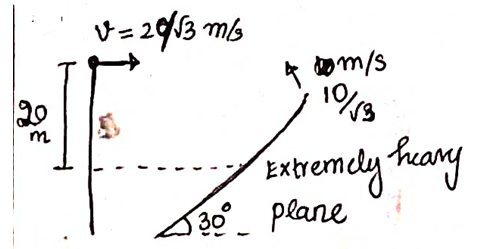 v = 20/√3 m/s
m/s
10/√3
20
m
Extremely heavy
plane
30°